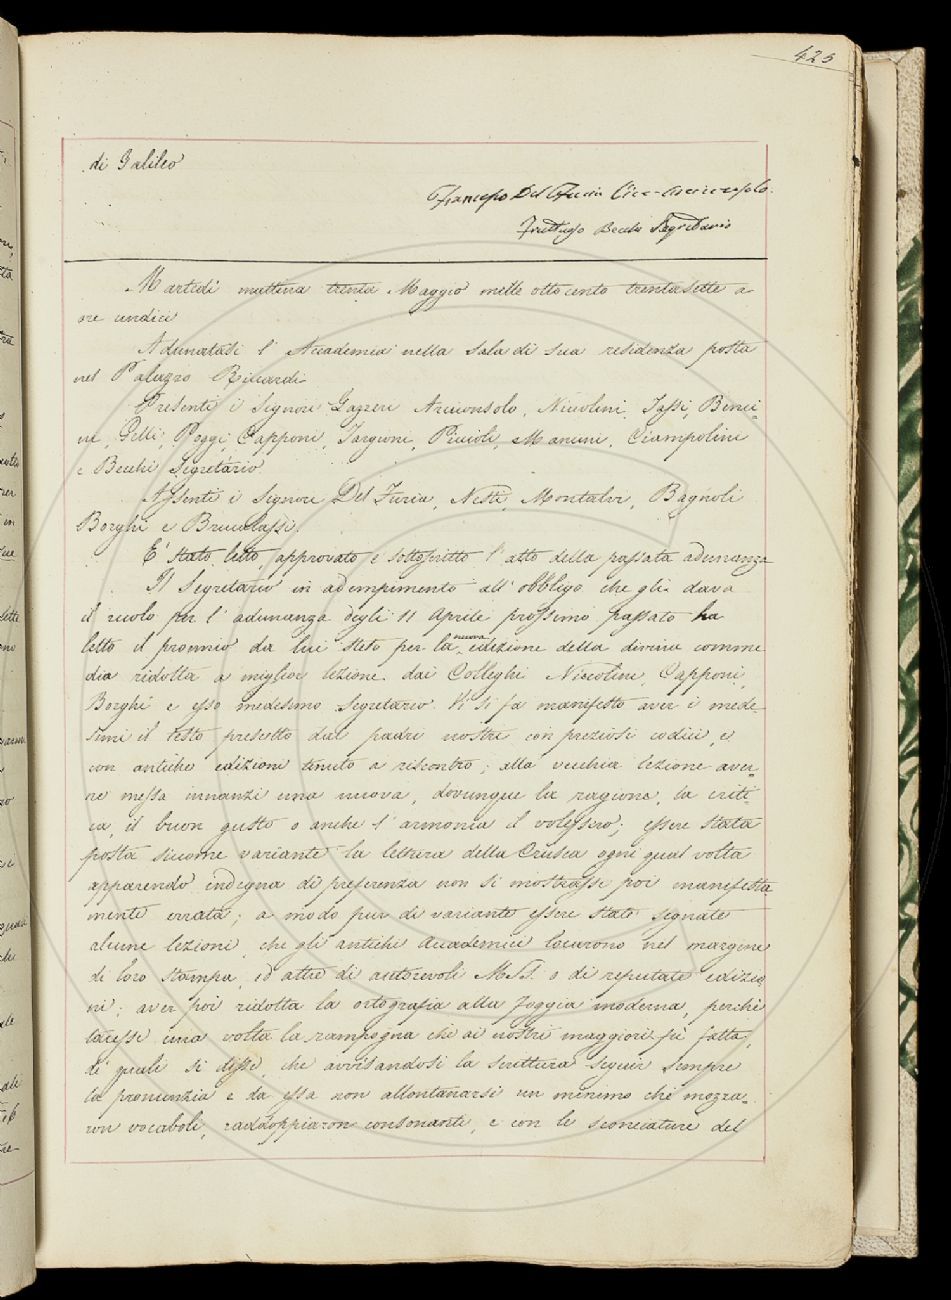 425
di Galileo
Francesco Del Furia Vice-Arciconsolo
Fruttuoso Becchi Segretario
Martedì mattina trenta Maggio mille ottocento trentasette a
ore undici
Adunatasi l' Accademia nella sala di sua residenza posta
nel Palazzo Riccardi
Presenti i Signori Gazzeri Arciconsolo, Niccolini, Tassi, Benci=
ni, Gelli, Poggi, Capponi, Targioni, Puccioli, Manuzzi, Ciampolini
e Becchi Segretario
Assenti i Signori Del Furia, Nesti, Montalvi, Bagnoli
Borghi e Brucalassi
E' stato letto, approvato e sottoscritto l' atto della passata adunanza
Il Segretario in adempimento all' obbligo che gli dava
il ruolo per l' adunanza degli 11 Aprile prossimo passato ha
letto il proemio da lui steso per la nuova edizione della divina comme
dia ridotta a miglior lezione dai Colleghi Niccolini, Capponi,
Borghi e esso medesimo Segretario. Vi si fa manifesto aver i mede=
simi il testo prescelto dai padri nostri con preziosi codici, e
con antiche edizioni tenuto a riscontro; alla vecchia lezione aver=
ne messa innanzi una nuova, dovunque la ragione, la criti=
ca, il buon gusto o anche l' armonia il volessero; essere stata
posta siccome variante la lettura della Crusca ogni qual volta
apparendo indegna di preferenza non si mostrasse poi manifesta
mente errata; a modo pur di variante essere state segnate
alcune lezioni, che gli antichi Accademici locarono nel margine
di loro stampa, ed altre di autorevoli MSS. o di reputate edizio
ni; aver poi ridotta la ortografia alla foggia moderna, perchè
tacesse una volta la rampogna che ai nostri maggiori fu fatta,
di quali si disse, che avvisandosi la scrittura seguir sempre
la pronunzia e da essa non allontanarsi un minimo che mozza=
ron vocaboli, raddoppiaron consonanti, e con le sconciature del